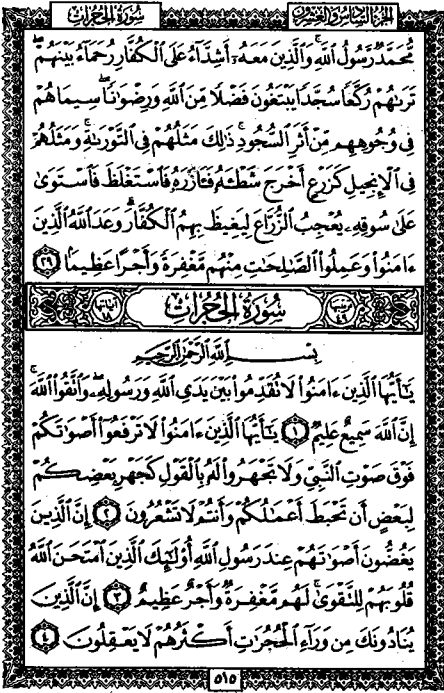 سُورَةُ الحُجُرَاتِ الجُزْءُ السَّادِسُ وَالعِشْرُونَ
مُّحَمَّدٌ رَّسُولُ ٱللَّهِ ۚ وَٱلَّذِينَ مَعَهُۥٓ أَشِدَّآءُ عَلَى ٱلْكُفَّارِ رُحَمَآءُ بَيْنَهُمْ ۖ
تَرَىٰهُمْ رُكَّعًا سُجَّدًا يَبْتَغُونَ فَضْلًا مِّنَ ٱللَّهِ وَرِضْوَٰنًا ۖ سِيمَاهُمْ
فِى وُجُوهِهِم مِّنْ أَثَرِ ٱلسُّجُودِ ۚ ذَٰلِكَ مَثَلُهُمْ فِى ٱلتَّوْرَىٰةِ ۚ وَمَثَلُهُمْ
فِى ٱلْإِنجِيلِ كَزَرْعٍ أَخْرَجَ شَطْـَٔهُۥ فَـَٔازَرَهُۥ فَٱسْتَغْلَظَ فَٱسْتَوَىٰ
عَلَىٰ سُوقِهِۦ يُعْجِبُ ٱلزُّرَّاعَ لِيَغِيظَ بِهِمُ ٱلْكُفَّارَ ۗ وَعَدَ ٱللَّهُ ٱلَّذِينَ
ءَامَنُوا۟ وَعَمِلُوا۟ ٱلصَّٰلِحَٰتِ مِنْهُم مَّغْفِرَةً وَأَجْرًا عَظِيمًۢا ٢٩
ترتيبها ٤٩ سُورَةُ الحُجُرَاتِ آياتها ١٨
بِسْمِ ٱللَّهِ ٱلرَّحْمَٰنِ ٱلرَّحِيمِ
يَٰٓأَيُّهَا ٱلَّذِينَ ءَامَنُوا۟ لَا تُقَدِّمُوا۟ بَيْنَ يَدَىِ ٱللَّهِ وَرَسُولِهِۦ ۖ وَٱتَّقُوا۟ ٱللَّهَ ۚ
إِنَّ ٱللَّهَ سَمِيعٌ عَلِيمٌ ١ يَٰٓأَيُّهَا ٱلَّذِينَ ءَامَنُوا۟ لَا تَرْفَعُوٓا۟ أَصْوَٰتَكُمْ
فَوْقَ صَوْتِ ٱلنَّبِىِّ وَلَا تَجْهَرُوا۟ لَهُۥ بِٱلْقَوْلِ كَجَهْرِ بَعْضِكُمْ
لِبَعْضٍ أَن تَحْبَطَ أَعْمَٰلُكُمْ وَأَنتُمْ لَا تَشْعُرُونَ ٢ إِنَّ ٱلَّذِينَ
يَغُضُّونَ أَصْوَٰتَهُمْ عِندَ رَسُولِ ٱللَّهِ أُو۟لَٰٓئِكَ ٱلَّذِينَ ٱمْتَحَنَ ٱللَّهُ
قُلُوبَهُمْ لِلتَّقْوَىٰ ۚ لَهُم مَّغْفِرَةٌ وَأَجْرٌ عَظِيمٌ ٣ إِنَّ ٱلَّذِينَ
يُنَادُونَكَ مِن وَرَآءِ ٱلْحُجُرَٰتِ أَكْثَرُهُمْ لَا يَعْقِلُونَ ٤
٥١٥